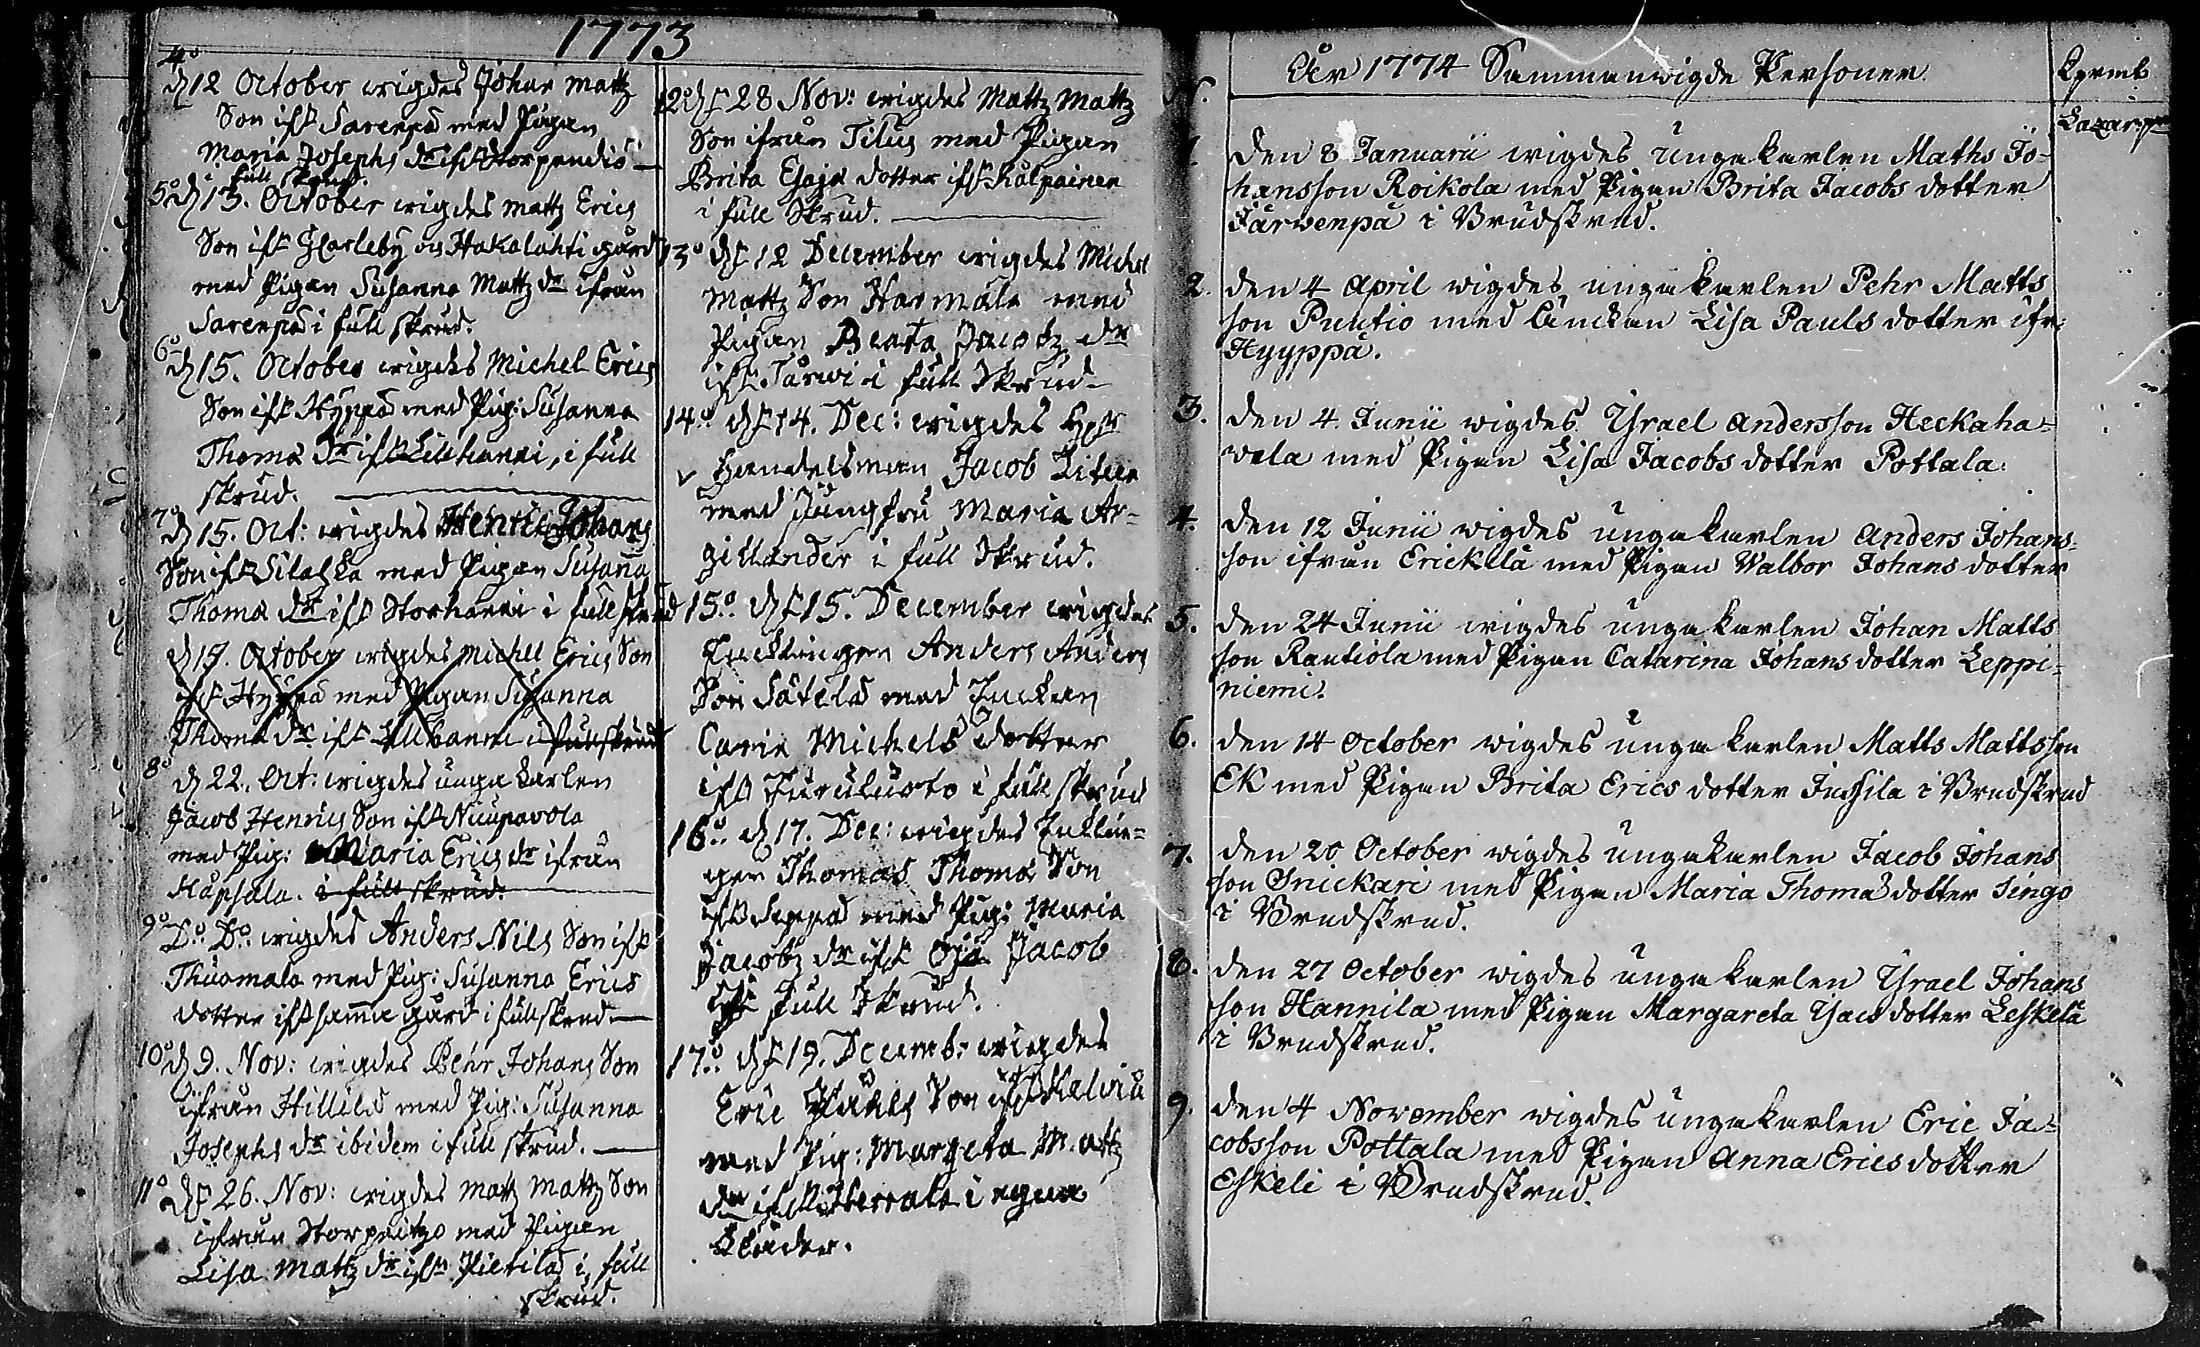 1773
4o
d 12 October wigdes Johan Matz
Son ifr Sarenpä med Pigan
Maria Josephs dr ifr Storpendis
i full skrud.
5o d 13. October wigdes Matz Erics
Son ifr GCarleby och Hakalahti gård
med Pigan Susanna Matz dr ifrån
Sarenpä i full skrud.
6o
d 15. October wigdes Michel Erics
Son ifr Hyppä med Pig: Susanna
Thomæ dr ifr Lillhanni, i full
skrud.
7o
d 15. Oct: wigdes Henric Johans
Son ifr med Pigan Susanna
Thomæ dr ifr Storhanni i full skrud
d 19. October wigdes Michel Erics Son
ifr Hyppä med Pigan Susanna
Thomæ dr ifr Lillhanni i full skrud
8o
d 22. Oct: wigdes unga karlen
Jacob Henrics Son ifr Niupavola
med Pig: Maria Erics dr ifrån
Hapsala. i full skrud.
9o
Do Do wigdes Anders Nils Son ifr
Thuomala med Pig: Susanna Erics
dotter ifr samma gård i full skrud.
10o d 9. Nov: wigdes Pehr Johans Son
ifrån Hillilä med Pig: Susanna
Josephs dr ibidem i full skrud.
11o d 26. Nov: wigdes Matz Matz Son
ifrån med Pigan
Lisa Matz dr ifrn Pietilä i full
skrud.
12o d 28 Nov: wigdes Matz Matz
Son ifrån Tilus med Pigan
Brita Esajæ dotter ifr Kälpäinen
i full Skrud.
13o d 12 December wigdes Michel
Matz Son Harmala med
Pigan Beata Jacobz dr
ifr Järwi i full Skrud
14o d 14. Dec: wigdes
Handelsman Jacob
med Jungfru Maria Ar-
gillander i full Skrud.
15o d 15. December wigdes
Enklingen Anders Anders
Son Sätelä med Enckan
Carin Michels dotter
ifr i full skrud
16o d 17. Dec: wigdes Enklin-
gen Thomas Thomæ Son
ifr Seppä med Pig: Maria
Jacobz dr ifr Oja Jacob
i full Skrud.
17o d 19. Decemb: wigdes
Eric Påhls Son ifr Kelviå
med Pig: Margeta Matz
dr ifr i egna
kläder.
N. År 1774 Sammanwigde Personer.
1 Den 8 Januarii wigdes Ungakarlen Maths Jo-
hansson Roikola med Pigan Brita Jacobs dotter
Järwenpä i Brudskrud.
2. den 4 April wigdes ungakarlen Pehr Matts
son Puutio med Änckan Lisa Pauls dotter ifr:
Hyyppä.
3. den 4. Junii wigdes Ysrael Andersson Heckaha-
vela med Pigan Lisa Jacobs dotter Pottala.
4. den 12 Junii wigdes ungakarlen Anders Johans-
son ifrån Erickilä med Pigan Walbor Johans dotter
5. den 24 Junii wigdes ungakarlen Johan Matts
son Rautiola med Pigan Catarina Johans dotter Leppi-
niemi.
6. den 14 October wigdes ungakarlen Matts Mattsson
Ek med Pigan Brita Erics dotter Jussila i Brudskrud
7. den 20 October wigdes ungakarlen Jacob Johans
son Snickari med Pigan Maria Thomæ dotter Singo
i Brudskrud.
8. den 27 October wigdes ungakarlen Ysrael Johans
son Hannila med Pigan Margareta Ysacs dotter Leskelä
i Brudskrud.
9. den 4 November wigdes ungakarlen Eric Ja-
cobsson Pottala med Pigan Anna Erics dotter
Eskeli i Brudskrud.